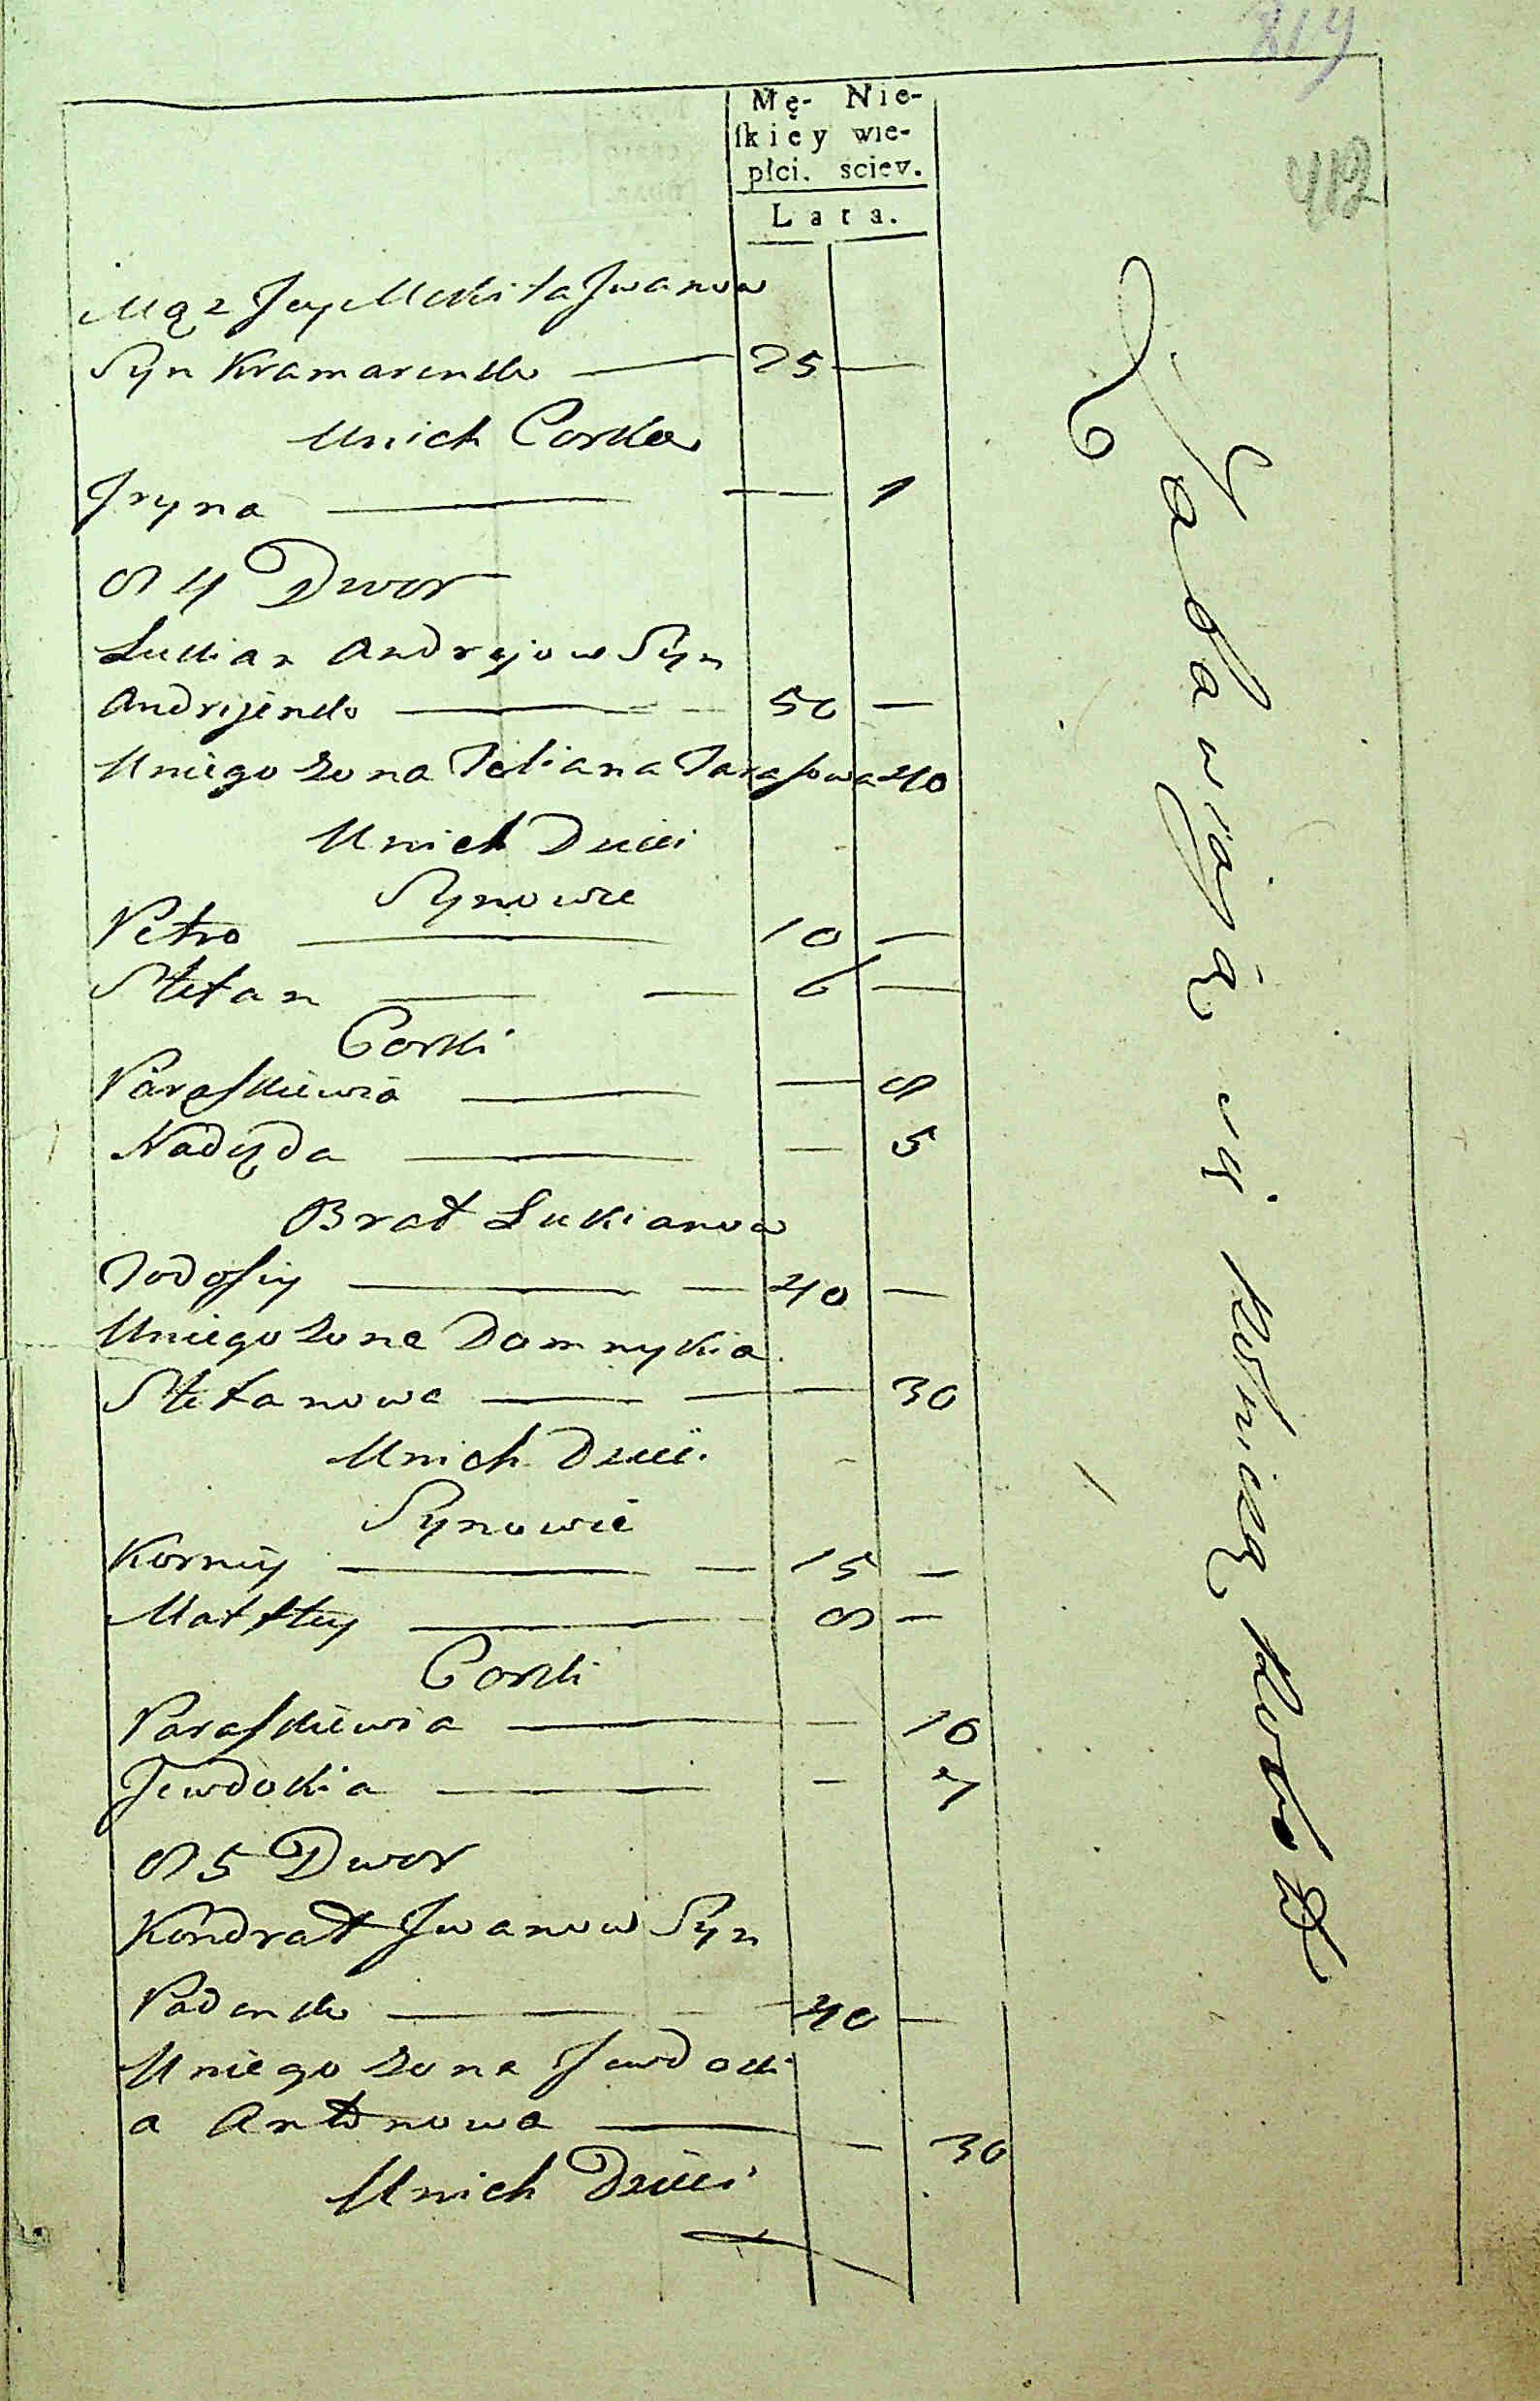 819
412
Mę- Nie-
ſkiey wie-
płci. sciey.
Lata.
Mąz Jey Mikita Jwanow
Syn Kramarenko — 25 —
Unich Corka
Jryna — — 1
84 Dwor
Lukian Andrejow Syn
Andrijenko — 50 —
Uniego Zona Tetiana Taraſowa 40
Unich Dzieci
Synowie
Petro — 10 —
Stefan — 6 —
Corki
Paraſkiewia — — 8
Nadęzda — — 5
Brat Lukianow
Todoſiy — 40 —
Uniego Zona Domnykia
Stefanowa — — 30
Unich Dzieci
Synowie
Korniy — 15 —
Matftey — 8 —
Corki
Paraſkiewia — — 10
Jewdokia — — 7
85 Dwor
Kondrat Jwanow Syn
Padenko — 40 —
Uniego Zona Jewdoki
a Antonowa — — 30
Unich Dzieci
Zabawiaią się Rolniczą Robotą